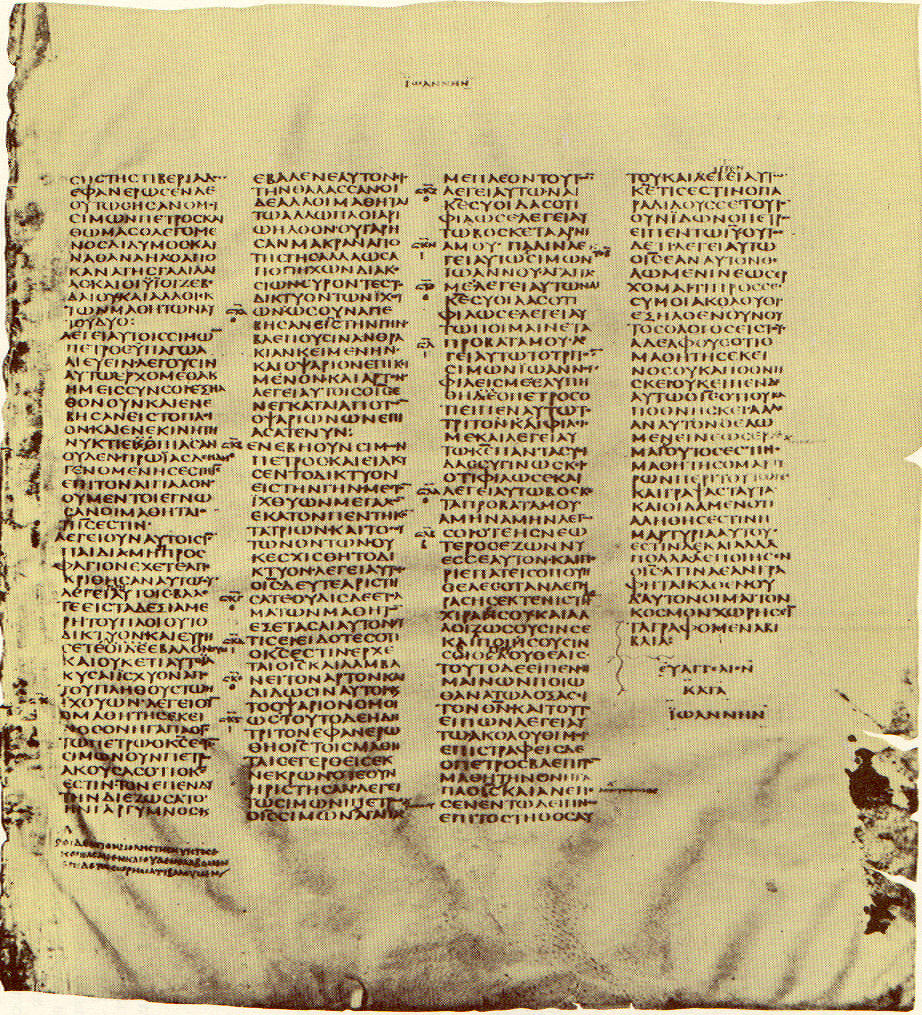 ΪΩΑΝΝΗΝ
ϹΗϹΤΗϹΤΙΒΕΡΙΑΔ
ΕΦΑΝΕΡΩϹΕΝΔΕ
ΟΥΤΩϹΗϹΑΝΟΜΟΥ
ϹΙΜΩΝΠΕΤΡΟϹΚΑΙ
ΘΩΜΑϹΟΛΕΓΟΜΕ
ΝΟϹΔΙΔΥΜΟϹΚΑΙ
ΝΑΘΑΝΑΗΛΟΑΠΟ
ΚΑΝΑΤΗϹΓΑΛΙΛΑΙ
ΑϹΚΑΙΟΙΫΙΟΙΖΕΒΕ
ΔΑΙΟΥΚΑΙΑΛΛΟΙΕΚ
ΤΩΝΜΑΘΗΤΩΝΑΥ
ΤΟΥΔΥΟ:
ΛΕΓΕΙΑΥΤΟΙϹϹΙΜΩ
ΠΕΤΡΟϹΫΠΑΓΩΑ
ΛΙΕΥΕΙΝΛΕΓΟΥϹΙΝ
ΑΥΤΩΕΡΧΟΜΕΘΑΚ
ΗΜΕΙϹϹΥΝϹΟΙΕΞΗΛ
ΘΟΝΟΥΝΚΑΙΕΝΕ
ΒΗϹΑΝΕΙϹΤΟΠΛΟΙ
ΟΝΚΑΙΕΝΕΚΙΝΗΤΗ
ΟΥΔΕΝΠΡΩΪΑϹΔΕΗΔΗ
ΓΕΝΟΜΕΝΗϹΕϹΤΗΙϹ
ΕΠΙΤΟΝΑΙΓΙΑΛΟΝ
ΟΥΜΕΝΤΟΙΕΓΝΩ
ϹΑΝΟΙΜΑΘΗΤΑΙ
ΛΕΓΕΙΟΥΝΑΥΤΟΙϹΙϹ
ΠΑΙΔΙΑΜΗΠΡΟϹ
ΦΑΓΙΟΝΕΧΕΤΕΑΠΕ
ΚΡΙΘΗϹΑΝΑΥΤΩΟΥ
ΛΕΓΕΙΑΥΤΟΙϹΒΑΛΕ
ΤΕΕΙϹΤΑΔΕΞΙΑΜΕ
ΡΗΤΟΥΠΛΟΙΟΥΤΟ
ΔΙΚΤΥΟΝΚΑΙΕΥΡΗ
ΚΑΙΟΥΚΕΤΙΑΥΤΟΕΛ
ΚΥϹΑΙΪϹΧΥΟΝΑΠΟ
ΤΟΥΠΛΗΘΟΥϹΤΩΝ
ΪΧΘΥΩΝΛΕΓΕΙΟΥ
ΟΜΑΘΗΤΗϹΕΚΕΙ
ΝΟϹΟΝΗΓΑΠΑΟΙϹ
ΤΩΠΕΤΡΩΟΚϹΕϹΤΙ
ϹΙΜΩΝΟΥΝΠΕΤΡΟϹ
ΑΚΟΥϹΑϹΟΤΙΟΚϹ
ΕϹΤΙΝΤΟΝΕΠΕΝΔΥ
ΤΗΝΔΙΕΖΩϹΑΤΟ
ΗΝΓΑΡΓΥΜΝΟϹΚ
ΕΒΑΛΕΝΕΑΥΤΟΝΕΙϹ
ΤΗΝΘΑΛΑϹϹΑΝΟΙ
ΔΕΑΛΛΟΙΜΑΘΗΤΑΙ
ΤΩΑΛΛΩΠΛΟΙΑΡΙ
ΩΗΛΘΟΝΟΥΓΑΡΗ
ϹΑΝΜΑΚΡΑΝΑΠΟ
ΤΗϹΓΗϹΑΛΛΑΩϹΑ
ΠΟΠΗΧΩΝΔΙΑΚΟ
ϹΙΩΝϹΥΡΟΝΤΕϹΤΟ
ΔΙΚΤΥΟΝΤΩΝΪΧΘΥ
ΩΝΩϹΟΥΝΑΠΕ
ΒΗϹΑΝΕΙϹΤΗΝΓΗΝ
ΒΛΕΠΟΥϹΙΝΑΝΘΡΑ
ΚΙΑΝΚΕΙΜΕΝΗΝ
ΚΑΙΟΨΑΡΙΟΝΕΠΙΚΙ
ΜΕΝΟΝΚΑΙΑΡΤΟΝ
ΛΕΓΕΙΑΥΤΟΙϹΟΙϹΕ
ΝΕΓΚΑΤΑΙΑΠΟΤΩ
ΟΨΑΡΙΩΝΩΝΕΠΙ
ΑϹΑΤΕΝΥΝ:
ΕΝΕΒΗΟΥΝϹΙΜΩΝ
ΠΕΤΡΟϹΚΑΙΕΙΛΚΥ
ϹΕΝΤΟΔΙΚΤΥΟΝ
ΕΙϹΤΗΝΓΗΝΜΕϹΤΟ
ΪΧΘΥΩΝΜΕΓΑΛΩ
ΕΚΑΤΟΝΠΕΝΤΗΚΟ
ΤΑΤΡΙΩΝΚΑΙΤΟϹΟΥ
ΤΩΝΟΝΤΩΝΟΥ
ΚΕϹΧΙϹΘΗΤΟΔΙ
ΚΤΥΟΝΛΕΓΕΙΑΥΤΟΙϹ
ΟΙϹΔΕΥΤΕΑΡΙϹΤΗ
ϹΑΤΕΟΥΔΙϹΔΕΕΤΟΛ
ΜΑΤΩΝΜΑΘΗΤΩ
ΕΞΕΤΑϹΑΙΑΥΤΟΝ
ΤΙϹΕΙΕΙΔΟΤΕϹΟΤΙ
ΟΚϹΕϹΤΙΝΕΡΧΕ
ΤΑΙΟΙϹΚΑΙΛΑΜΒΑ
ΝΕΙΤΟΝΑΡΤΟΝΚΑΙ
ΔΙΔΩϹΙΝΑΥΤΟΙϹΚ
ΤΟΟΨΑΡΙΟΝΟΜΟΙ
ΩϹΤΟΥΤΟΔΕΗΔΗ
ΤΡΙΤΟΝΕΦΑΝΕΡΩ
ΘΗΟΙϹΤΟΙϹΜΑΘΗ
ΤΑΙϹΕΓΕΡΘΕΙϹΕΚ
ΝΕΚΡΩΝΟΤΕΟΥΝ
ΗΡΙϹΤΗϹΑΝΛΕΓΕΙ
ΤΩϹΙΜΩΝΙΠΕΤΡΩ
ΟΙϹϹΙΜΩΝΑΓΑΠΑϹ
ΜΕΠΛΕΟΝΤΟΥΤΩ
ΛΕΓΕΙΑΥΤΩΝΑΙ
ΚΕϹΥΟΙΔΑϹΟΤΙ
ΦΙΛΩϹΕΛΕΓΕΙΑΥ
ΤΩΒΟϹΚΕΤΑΑΡΝΙ
ΑΜΟΥ ΠΑΛΙΝΛΕ
ΓΕΙΑΥΤΩϹΙΜΩΝ
ΪΩΑΝΝΟΥΑΓΑΠΑϹ
ΜΕΛΕΓΕΙΑΥΤΩΝΑΙ
ΚΕϹΥΟΙΔΑϹΟΤΙ
ΦΙΛΩϹΕΛΕΓΕΙΑΥ
ΤΩΠΟΙΜΑΙΝΕΤΑ
ΠΡΟΒΑΤΑΜΟΥΛΕ
ΓΕΙΑΥΤΩΤΟΤΡΙΤΟ
ϹΙΜΩΝΪΩΑΝΝΟΥ
ΦΙΛΕΙϹΜΕΕΛΥΠΗ
ΘΗΔΕΟΠΕΤΡΟϹΟ
ΤΡΙΤΟΝΚΑΙΦΙΛΕΙ
ΜΕΚΑΙΛΕΓΕΙΑΥ
ΤΩΚΕΠΑΝΤΑϹΥ
ΟΤΙΦΙΛΩϹΕΚΑΙ
ΛΕΓΕΙΑΥΤΩΒΟϹΚΕ
ΤΑΠΡΟΒΑΤΑΜΟΥ
ΑΜΗΝΑΜΗΝΛΕΓΩ
ϹΟΙΟΤΕΗϹΝΕΩ
ΤΕΡΟϹΕΖΩΝΝΥ
ΘΕΛΕϹΟΤΑΝΔΕΓΗ
ΡΑϹΗϹΕΚΤΕΝΙϹΤΑϹ
ΧΙΡΑΙϹΟΥΚΑΙΑΛ
ΛΟΙΖΩϹΟΥϹΙΝϹΕ
ΤΟΥΤΟΔΕΕΙΠΕΝϹΗ
ΜΑΙΝΩΝΠΟΙΩ
ΘΑΝΑΤΩΔΟΞΑϹΕΙ
ΤΟΝΘΝΚΑΙΤΟΥΤ
ΕΙΠΩΝΛΕΓΕΙΑΥ
ΤΩΑΚΟΛΟΥΘΙΜΟΙ
ΕΠΙϹΤΡΑΦΕΙϹΔΕ
ΟΠΕΤΡΟϹΒΛΕΠΙΤΟ
ΜΑΘΗΤΗΝΟΝΗΓΑ
ΠΑΟΙϹΚΑΙΑΝΕΠΕ
ϹΕΝΕΝΤΩΔΕΙΠΝΩ
ΕΠΙΤΟϹΤΗΘΟϹΑΥ
ΤΟΥΚΑΙΛΕΓΕΙΑΥΤΩ
ΚΕΤΙϹΕϹΤΙΝΟΠΑ
ΡΑΔΙΔΟΥϹϹΕΤΟΥΤΟ
ΟΥΝΪΔΩΝΟΠΕΤΡΟϹ
ΕΙΠΕΝΤΩΙΥΟΥΤΟϹ
ΔΕΤΙΛΕΓΕΙΑΥΤΩ
ΟΙϹΕΑΝΑΥΤΟΝΘΕ
ΛΩΜΕΝΙΝΕΩϹΕΡ
ΧΟΜΑΙΤΙΠΡΟϹϹΕ
ϹΥΜΟΙΑΚΟΛΟΥΘΙ
ΕΞΗΛΘΕΝΟΥΝΟΥ
ΤΟϹΟΛΟΓΟϹΕΙϹΤΟΥϹ
ΑΔΕΛΦΟΥϹΟΤΙΟ
ΜΑΘΗΤΗϹΕΚΕΙ
ΝΟϹΟΥΚΑΠΟΘΝΗ
ϹΚΕΙΟΥΚΕΙΠΕΝΔΕ
ΑΥΤΩΟΙϹΟΤΙΟΥΚΑ
ΠΟΘΝΗϹΚΕΙΑΛΛΕ
ΑΝΑΥΤΟΝΘΕΛΩ
ΜΕΝΕΙΝΕΩϹΕΡΧΟ
ΜΑΙΟΥΤΟϹΕϹΤΙΝ
ΜΑΘΗΤΗϹΟΜΑΡΤΥ
ΡΩΝΠΕΡΙΤΟΥΤΩΝ
ΚΑΙΓΡΑΨΑϹΤΑΥΤΑ
ΚΑΙΟΙΔΑΜΕΝΟΤΙ
ΑΛΗΘΗϹΕϹΤΙΝΗ
ΜΑΡΤΥΡΙΑΑΥΤΟΥ
ΕϹΤΙΝΔΕΚΑΙΑΛΛΑ
ΠΟΛΛΑΑΕΠΟΙΗϹΕΝ
ΟΙϹΑΤΙΝΑΕΑΝΓΡΑ
ΦΗΤΑΙΚΑΘΕΝΟΥ
ΔΑΥΤΟΝΟΙΜΑΙΤΟΝ
ΚΟϹΜΟΝΧΩΡΗϹΕΙ
ΤΑΓΡΑΦΟΜΕΝΑΒΙ
ΒΛΙΑ:
ΕΥΑΓΓΕΛΙΟΝ
ΚΑΤΑ
ΪΩΑΝΝΗΝ